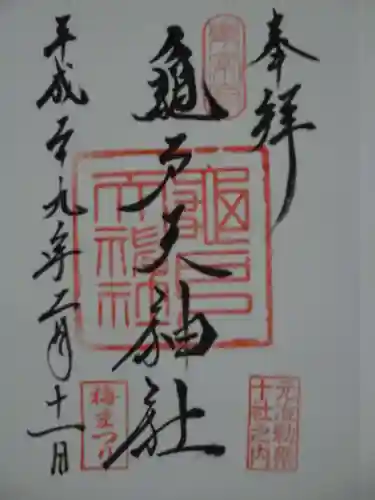 奉拝
龜戸天神社
平成二十九年二月十一日
龜戸天神社
元准勅祭
十社之内
梅まつり